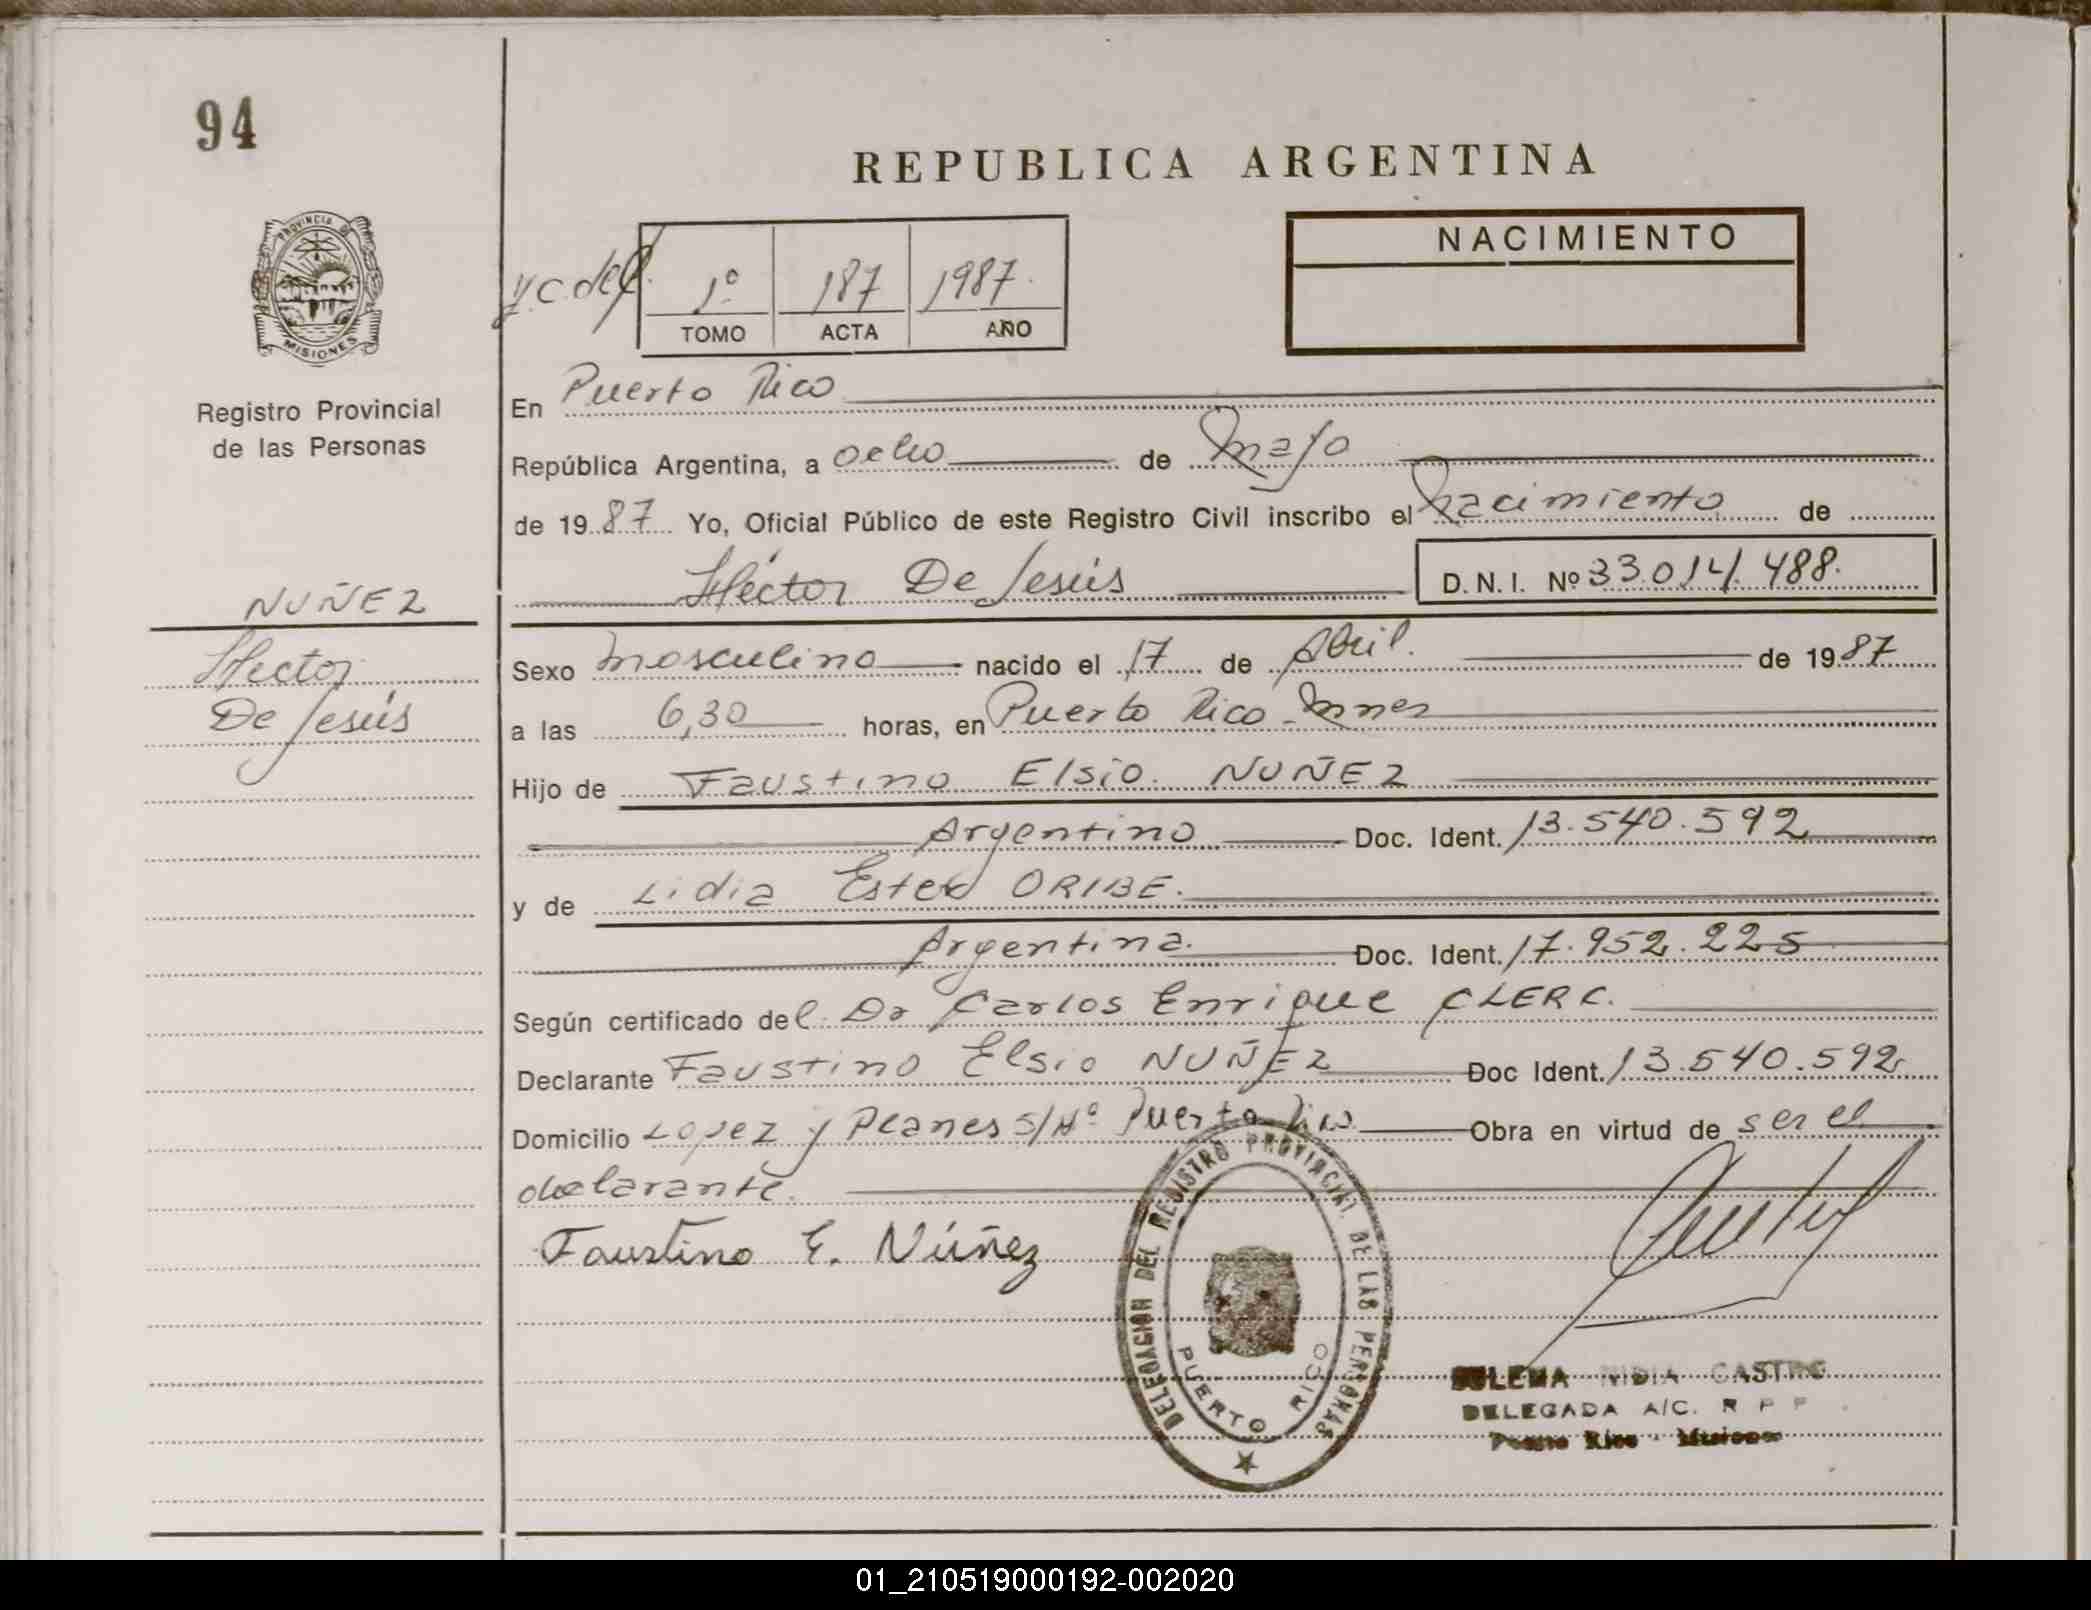 94
REPUBLICA ARGENTINA
PROVINCIA DE
MISIONES
Registro Provincial
de las Personas
1º 187 1987
TOMO ACTA AÑO
NACIMIENTO
En Puerto Rico
República Argentina, a ocho de Mayo
de 1987 Yo, Oficial Público de este Registro Civil inscribo el Nacimiento de
Héctor De Jesús D.N.I. Nº 33.014.488.
NUÑEZ
Hector
De Jesús
Sexo masculino nacido el 17 de Abril. de 1987
a las 6,30 horas, en Puerto Rico - Mnes
Hijo de Faustino Elsio. NUÑEZ
Argentino Doc. Ident. 13.540.592
y de Lidia Ester ORIBE.
Argentina. Doc. Ident. 17.952.225
Según certificado del Dr Carlos Enrique CLERC.
Declarante Faustino Elsio NUÑEZ Doc Ident. 13.540.592
Domicilio Lopez y Planes S/Nº Puerto Rico Obra en virtud de ser el
declarante.
Faustino E. Núñez
DELEGACION DEL REGISTRO PROVINCIAL DE LAS PERSONAS
PUERTO RICO
NIDIA CASTRO
DELEGADA A/C. R P P
Puerto Rico - Misiones
01_210519000192-002020